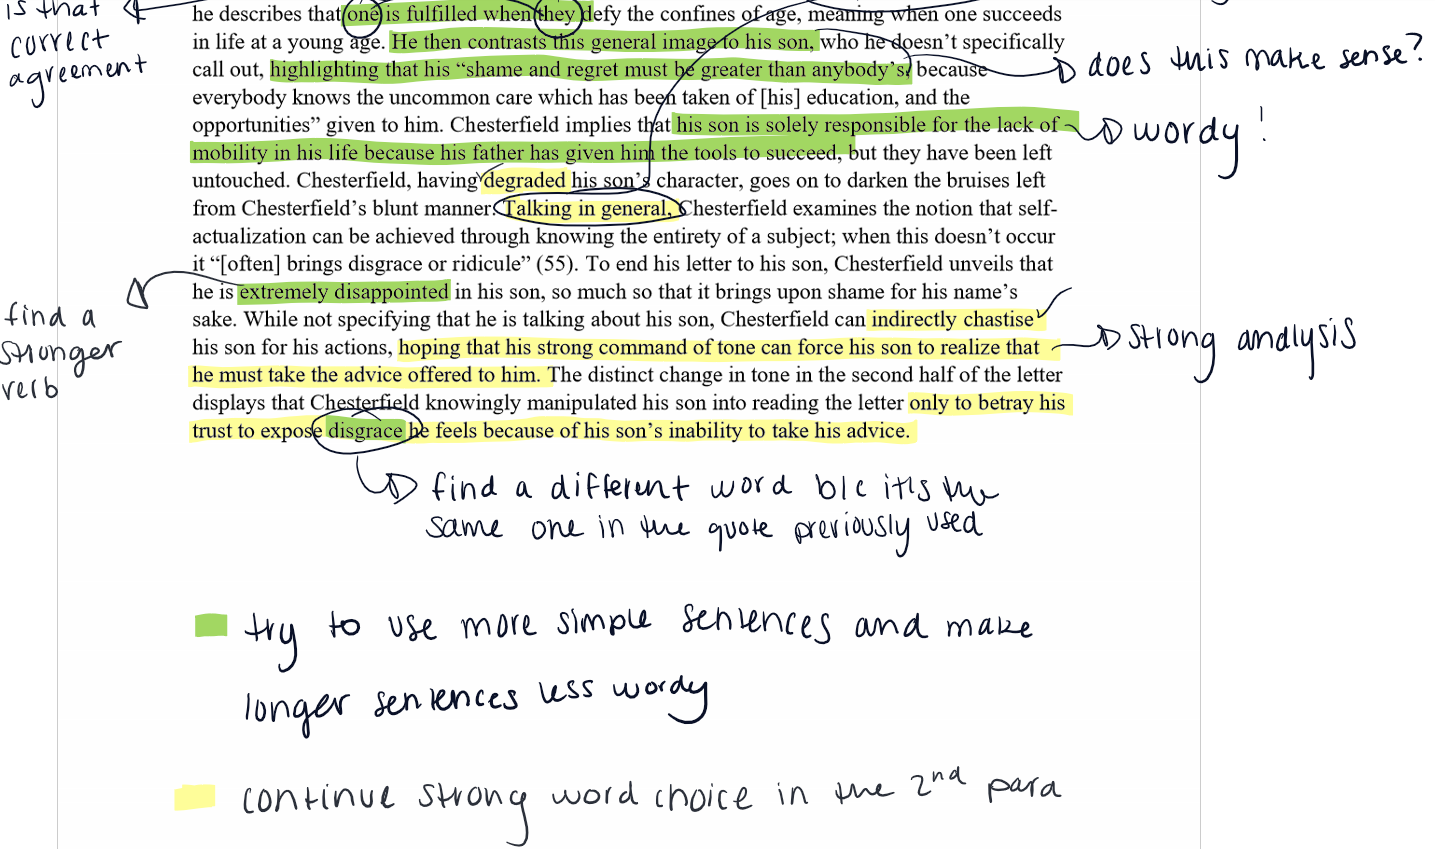 is that
correct
agreement
he describes that one is fulfilled when they defy the confines of age, meaning when one succeeds
in life at a young age. He then contrasts this general image to his son, who he doesn't specifically
call out, highlighting that his “shame and regret must be greater than anybody's, because
everybody knows the uncommon care which has been taken of [his] education, and the
opportunities” given to him. Chesterfield implies that his son is solely responsible for the lack of
mobility in his life because his father has given him the tools to succeed, but they have been left
untouched. Chesterfield, having degraded his son's character, goes on to darken the bruises left
from Chesterfield's blunt manner. Talking in general, Chesterfield examines the notion that self-
actualization can be achieved through knowing the entirety of a subject; when this doesn't occur
it “[often] brings disgrace or ridicule” (55). To end his letter to his son, Chesterfield unveils that
he is extremely disappointed in his son, so much so that it brings upon shame for his name's
sake. While not specifying that he is talking about his son, Chesterfield can indirectly chastise
his son for his actions, hoping that his strong command of tone can force his son to realize that
he must take the advice offered to him. The distinct change in tone in the second half of the letter
displays that Chesterfield knowingly manipulated his son into reading the letter only to betray his
trust to expose disgrace he feels because of his son's inability to take his advice.
does this make sense?
wordy!
find a
stronger
verb
strong analysis
find a different word b/c it's the
same one in the quote previously used
try to use more simple sentences and make
longer sentences less wordy
continue strong word choice in the 2nd para